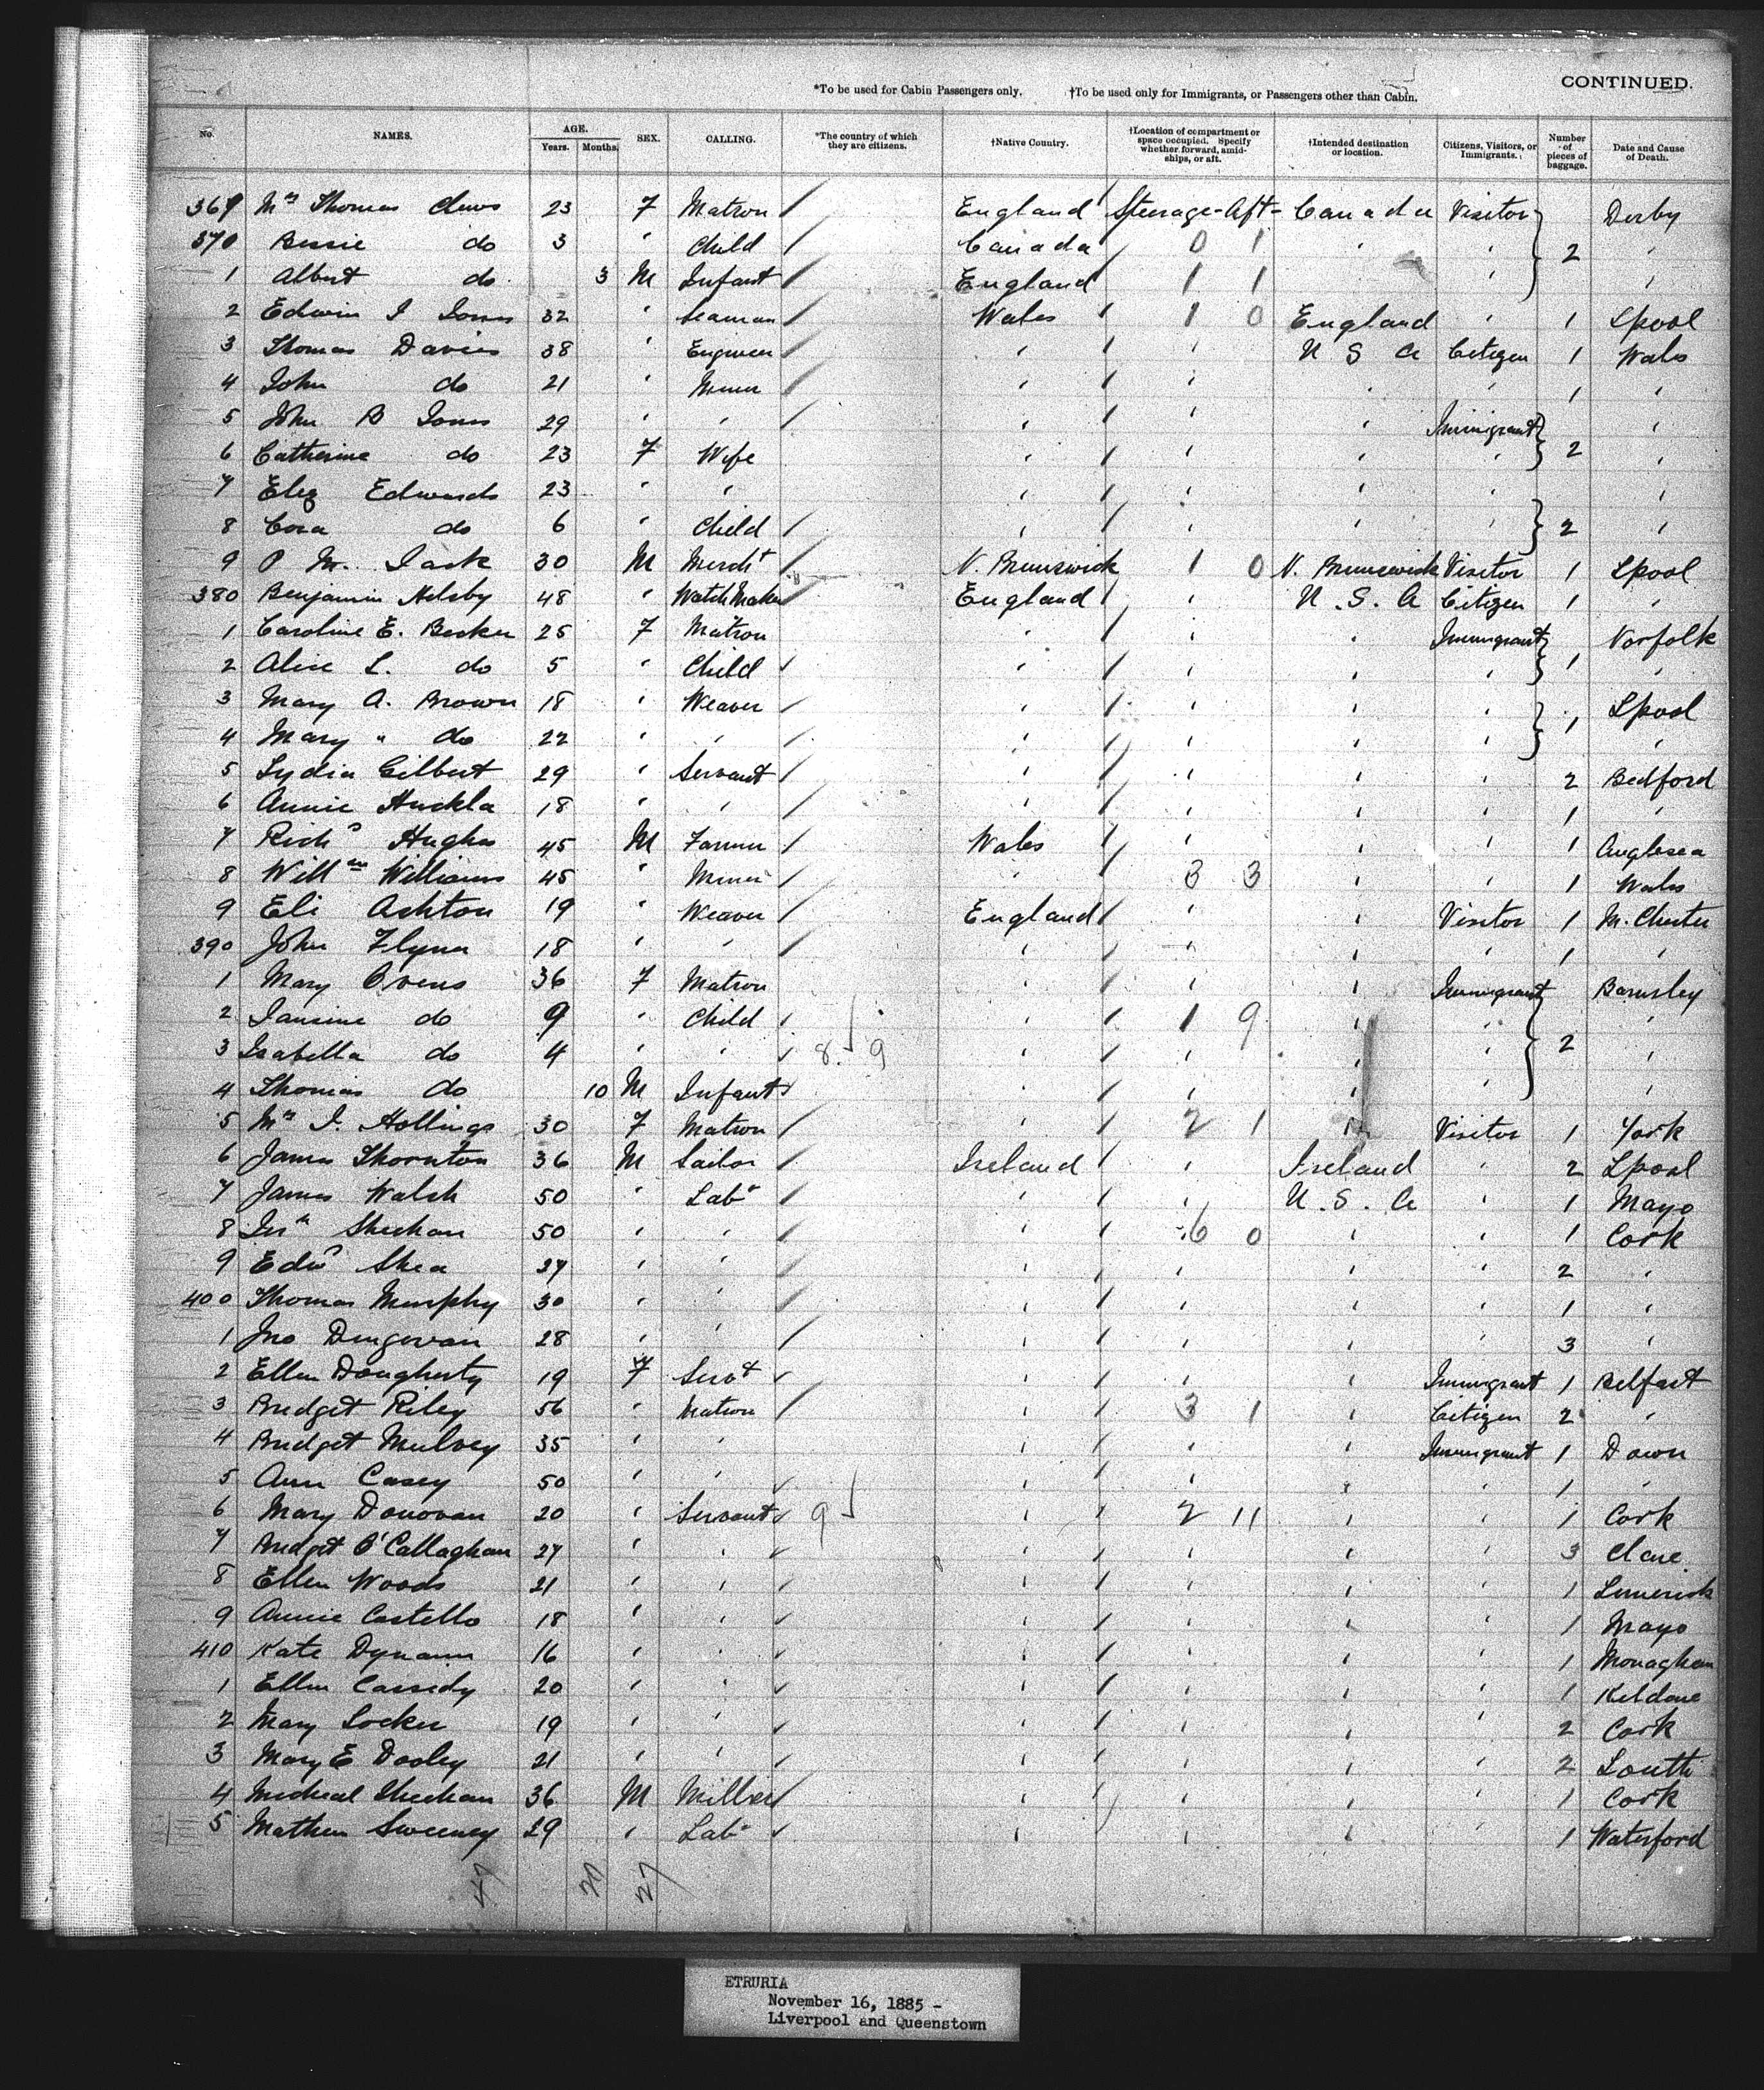 CONTINUED.
*To be used for Cabin Passengers only. †To be used only for Immigrants, or Passengers other than Cabin.
No. NAMES. AGE. Years. Months. SEX. CALLING. *The country of which they are citizens. †Native Country. †Location of compartment or space occupied. Specify whether forward, amidships, or aft. †Intended destination or location. Citizens, Visitors, or Immigrants. Number of pieces of baggage. Date and Cause of Death.
369 Mrs Thomas 23 F Matron England Steerage-Aft- Canada Visitor Derby
370 Bessie do 3 " Child Canada 0 1 " " 2 "
1 Albert do 3 M Infant England 1 1 " "
2 Edwin J Jones 32 " Seaman Wales 1 0 England " 1 Lpool
3 Thomas Davies 38 " Engineer " " U S A Citizen 1 Wales
4 John do 21 " Miner " " " " 1 "
5 John B Jones 29 " " " " " Immigrant "
6 Catherine do 23 F Wife " " " " 2 "
7 Eliz Edwards 23 " " " " " " "
8 Cora do 6 " Child " " " " 2 "
9 P M. Jack 30 M Mercht N. Brunswick 1 0 N. Brunswick Visitor 1 Lpool
380 Benjamin Helsby 48 " Watch Maker England " U.S.A Citizen 1 "
1 Caroline E. Becker 25 F Matron " " " Immigrant Norfolk
2 Alice L. do 5 " Child " " " " 1 "
3 Mary A. Brown 18 " Weaver " " " " 1 Lpool
4 Mary " do 22 " " " " " " "
5 Lydia Gilbert 29 " Servant " " " " 2 Bedford
6 Annie Huckla 18 " " " " " " 1 "
7 Richd Hughes 45 M Farmer Wales " " " 1 Anglesea
8 Willm Williams 45 " Miner " 3 3 " " 1 Wales
9 Eli Ashton 19 " Weaver England " " Visitor 1 M.Chester
390 John Flynn 18 " " " " " " 1 "
1 Mary Ovens 36 F Matron " " " Immigrant Barnsley
2 do 9 " Child " 1 9 " " "
3 Isabella do 4 " " 8 9 " " " " 2 "
4 Thomas do 10 M Infant " " " " "
5 Mrs J. Hollings 30 F Matron " 2 1 " Visitor 1 York
6 James Thornton 36 M Sailor Ireland " Ireland " 2 Lpool
7 James Walsh 50 " Labr " " U.S.A " 1 Mayo
8 Sheehan 50 " " " 6 0 " " 1 Cork
9 Edwd Shea 27 " " " " " " 2 "
400 Thomas Murphy 30 " " " " " " 1 "
1 Jno Dungevan 28 " " " " " " 3 "
2 Ellen Dougherty 19 F Servt " " " Immigrant 1 Belfast
3 Bridget Riley 56 " Matron " 3 1 " Citizen 2 "
4 Bridget Mulvey 35 " " " " " Immigrant 1 Down
5 Ann Casey 50 " " " " " " 1 "
6 Mary Donovan 20 " Servant 9 " 2 11 " " 1 Cork
7 Bridget O'Callaghan 27 " " " " " " 3 Clare
8 Ellen Woods 21 " " " " " " 1 Limerick
9 Annie Costello 18 " " " " " " 1 Mayo
410 Kate Dynann 16 " " " " " " 1 Monaghan
1 Ellen Cassidy 20 " " " " " " 1 Kildare
2 Mary Locker 19 " " " " " " 2 Cork
3 Mary E Dooley 21 " " " " " " 2 Louth
4 Micheal Sheehan 36 M Miller " " " " 1 Cork
5 Mathew Sweeney 29 " Labr " " " " 1 Waterford
47 20 27
ETRURIA
November 16, 1885 -
Liverpool and Queenstown